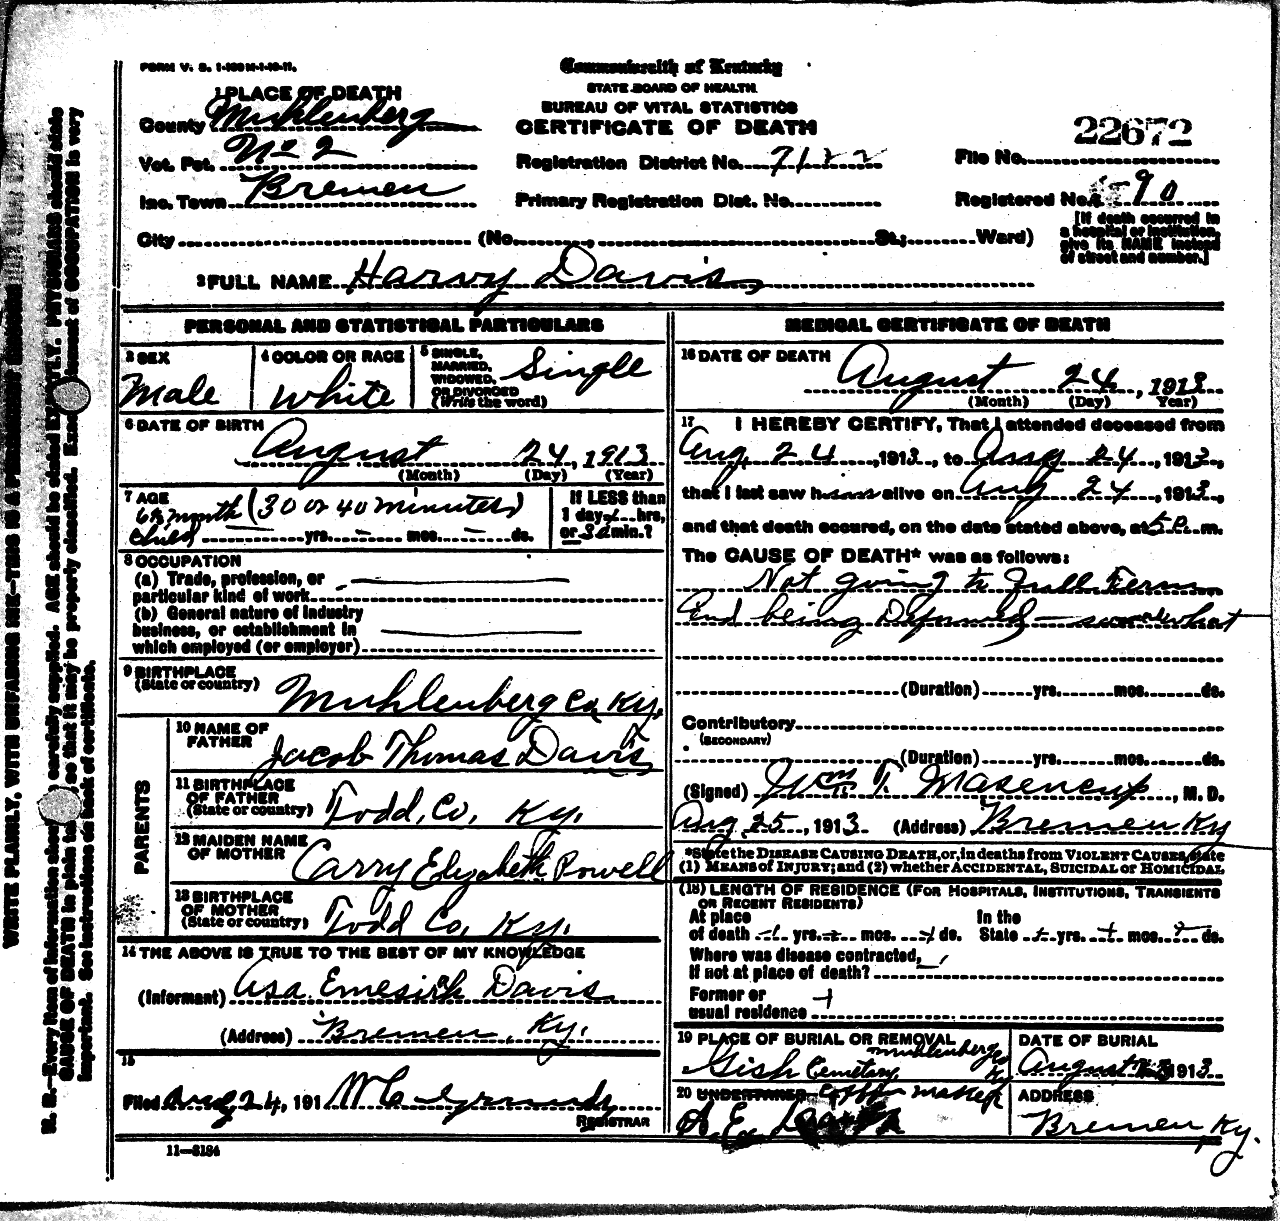 FORM V. S. 1-100M-1-10-11.
Commonwealth of Kentucky
STATE BOARD OF HEALTH
BUREAU OF VITAL STATISTICS
CERTIFICATE OF DEATH
1 PLACE OF DEATH
County Muhlenberg
Vot. Pct. No 2
Inc. Town Bremen
City (No. , St.; Ward)
Registration District No. 7122
Primary Registration Dist. No.
22672
File No.
Registered No. 90
[If death occurred in
a hospital or institution,
give its NAME instead
of street and number.]
2 FULL NAME Harvy Davis
PERSONAL AND STATISTICAL PARTICULARS
3 SEX
Male
4 COLOR OR RACE
White
5 SINGLE,
MARRIED,
WIDOWED,
OR DIVORCED
(Write the word)
Single
6 DATE OF BIRTH
August 24, 1913
(Month) (Day) (Year)
7 AGE
6½ month (30 or 40 minutes)
child yrs. mos. ds.
If LESS than
1 day hrs,
or 30 min.?
8 OCCUPATION
(a) Trade, profession, or
particular kind of work
(b) General nature of industry
business, or establishment in
which employed (or employer)
9 BIRTHPLACE
(State or country)
Muhlenberg Co, Ky.
PARENTS
10 NAME OF
FATHER
Jacob Thomas Davis
11 BIRTHPLACE
OF FATHER
(State or country)
Todd, Co, Ky.
12 MAIDEN NAME
OF MOTHER
Carry Elizabeth Powell
13 BIRTHPLACE
OF MOTHER
(State or country)
Todd Co, Ky.
14 THE ABOVE IS TRUE TO THE BEST OF MY KNOWLEDGE
(Informant) Asa Davis
(Address) Bremen, Ky.
15
Filed Aug 24, 191
REGISTRAR
11—3184
MEDICAL CERTIFICATE OF DEATH
16 DATE OF DEATH
August 24, 1913
(Month) (Day) Year)
17 I HEREBY CERTIFY, That I attended deceased from
Aug 24, 1913, to Aug 24, 1913,
that I last saw h alive on Aug 24, 1913,
and that death occured, on the date stated above, at 5 P. m.
The CAUSE OF DEATH* was as follows:
Not going to full Term
and being Deformed — somewhat
(Duration) yrs. mos. ds.
Contributory
(SECONDARY)
(Duration) yrs. mos. ds.
(Signed) Wm T. Masencup, M. D.
Aug 25, 1913 (Address) Bremen Ky
*State the DISEASE CAUSING DEATH, or, in deaths from VIOLENT CAUSES, state
(1) MEANS of INJURY; and (2) whether ACCIDENTAL, SUICIDAL or HOMICIDAL
(18) LENGTH OF RESIDENCE (FOR HOSPITALS, INSTITUTIONS, TRANSIENTS
OR RECENT RESIDENTS)
At place In the
of death yrs. mos. ds. State yrs. mos. ds.
Where was disease contracted,
If not at place of death?
Former or
usual residence
19 PLACE OF BURIAL OR REMOVAL
Gish Cemetery Muhlenberg Co Ky
DATE OF BURIAL
August 1913
20 UNDERTAKER maker
A. E.
ADDRESS
Bremen, Ky.
WRITE PLAINLY, WITH UNFADING INK—THIS IS A PERMANENT RECORD
N. B.—Every item of information should be carefully supplied. AGE should be stated EXACTLY. PHYSICIANS should state
CAUSE OF DEATH in plain terms, so that it may be properly classified. Exact statement of OCCUPATION is very
important. See instructions on back of certificate.